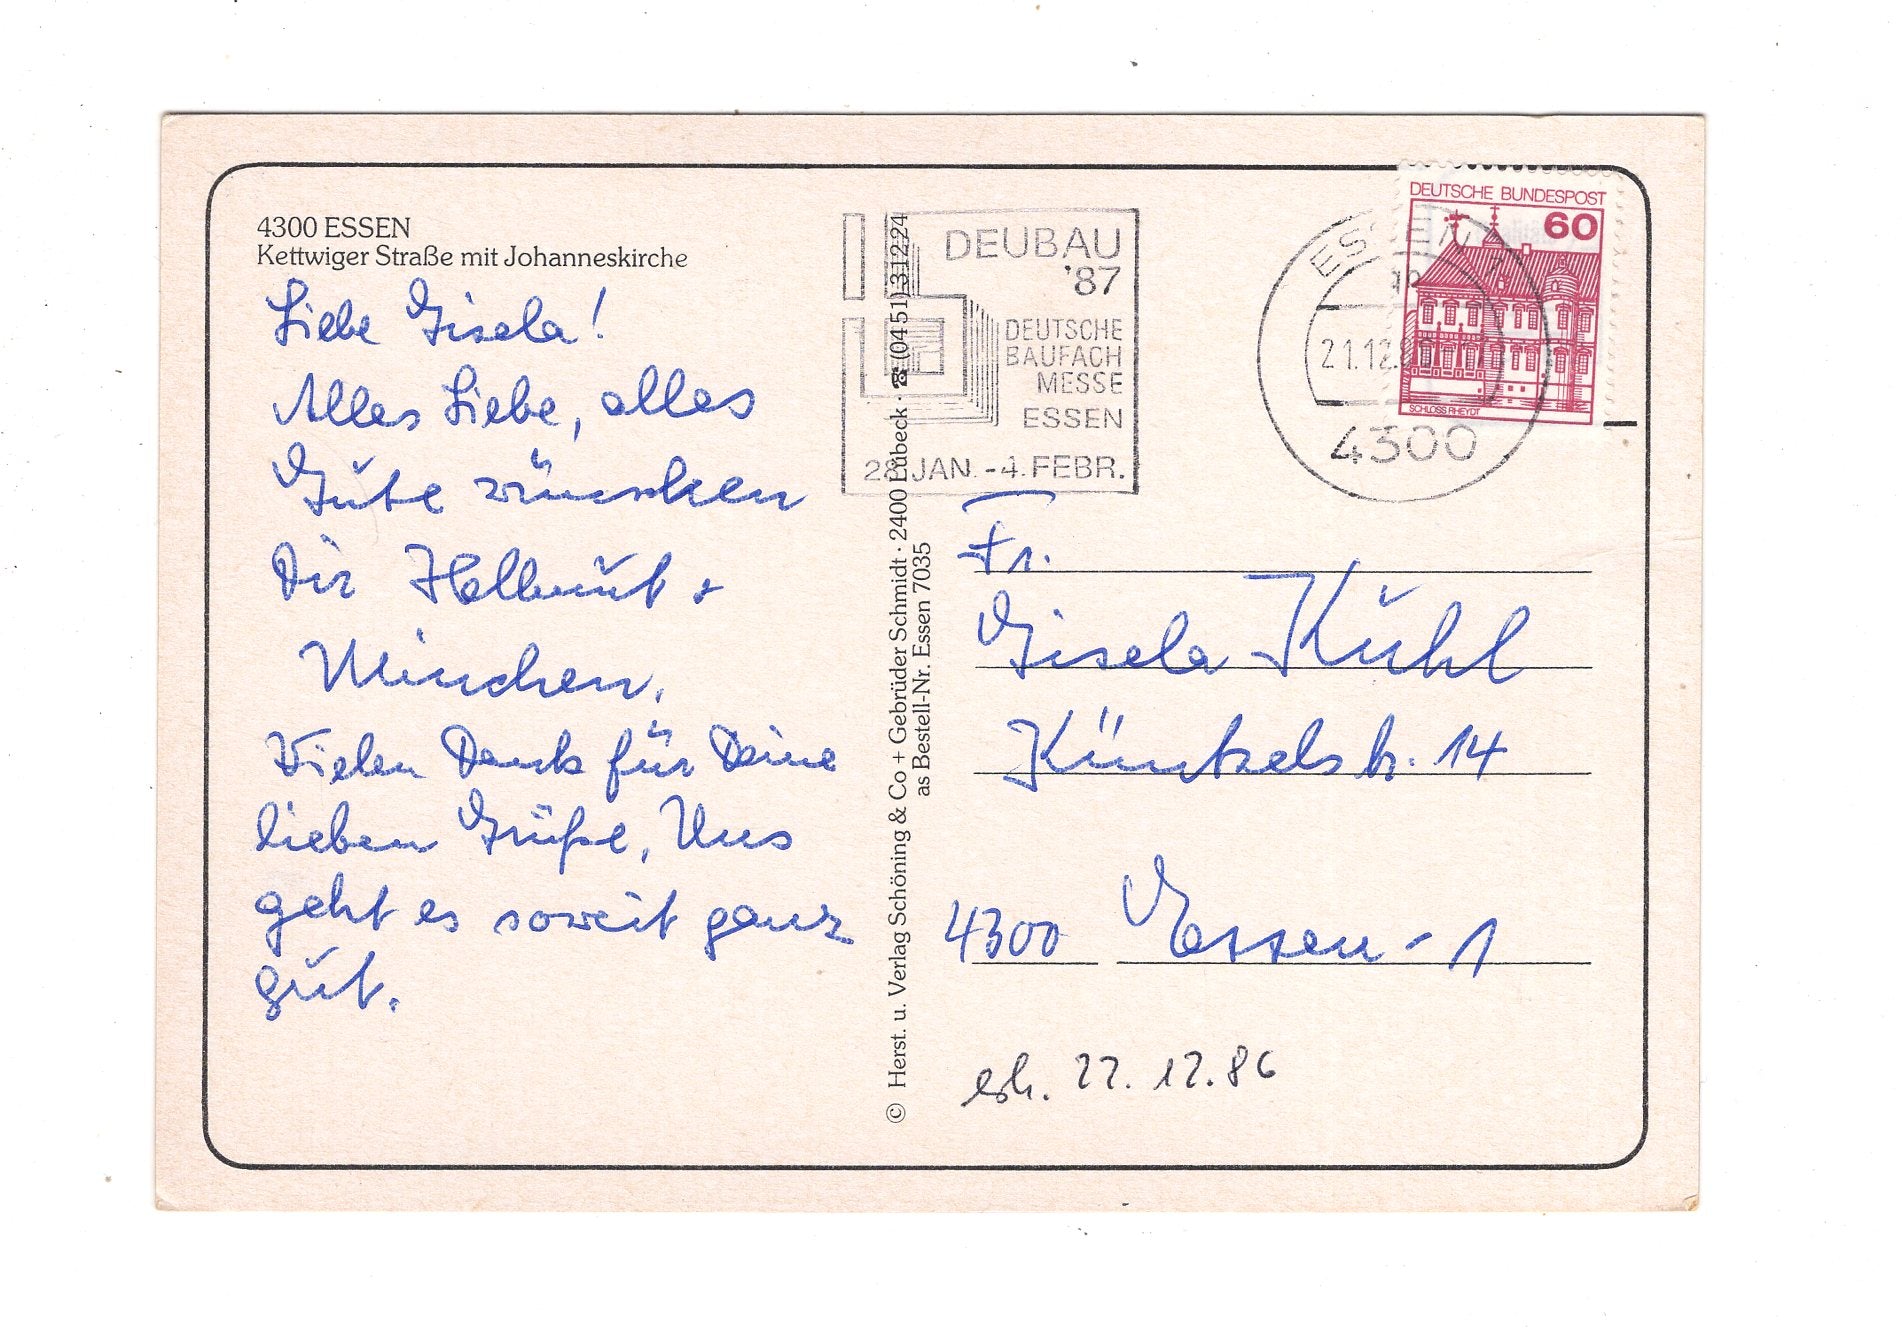 4300 ESSEN
Kettwiger Straße mit Johanneskirche
Liebe Gisela!
Alles Liebe, alles
Gute wünschen
Dir Hellmut +
Minchen.
Vielen Dank für Deine
lieben Grüße. Uns
geht es soweit ganz
gut.
© Herst. u. Verlag Schöning & Co + Gebrüder Schmidt · 2400 Lübeck · ☎ (04 51) 3 12 24
as Bestell-Nr. Essen 7035
DEUBAU
'87
DEUTSCHE
BAUFACH
MESSE
ESSEN
28. JAN. - 4. FEBR.
ESSEN 1
21.12.
4300
DEUTSCHE BUNDESPOST
60
SCHLOSS RHEYDT
Fr.
Gisela Kuhl
Küntzelstr. 14
4300 Essen - 1
erh. 22. 12. 86